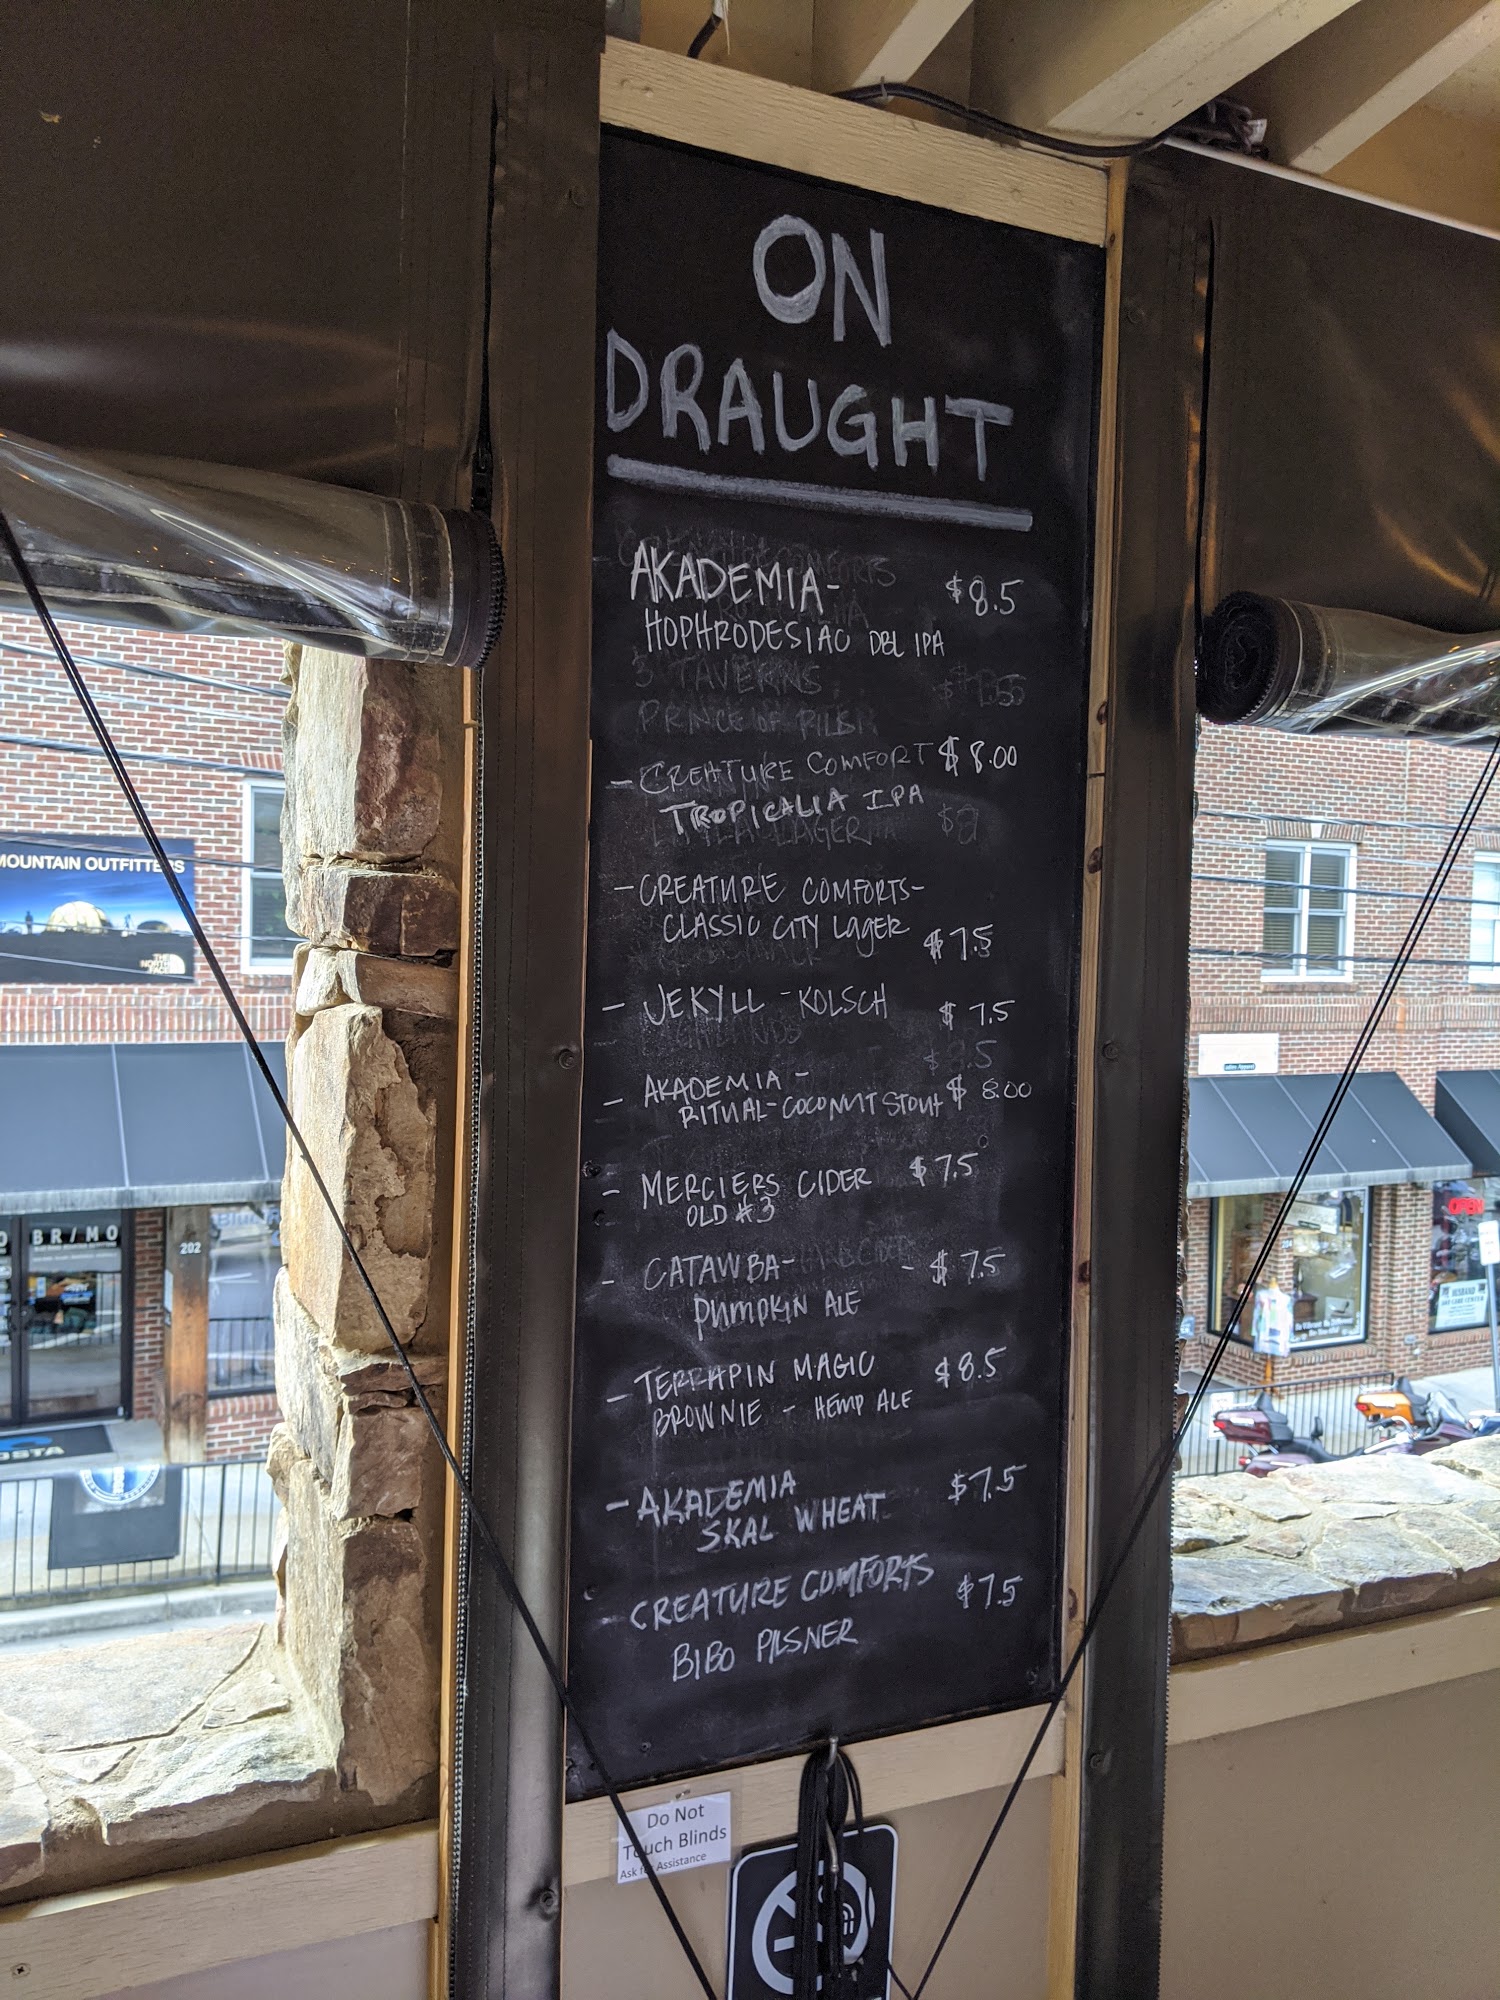 ON
DRAUGHT
AKADEMIA- $8.5
HOPHRODESIAC DBL IPA
3 TAVERNS
PRNCE OF PILS
- CREATURE COMFORT $8.00
TROPICALIA IPA
LAGER
- CREATURE COMFORTS-
CLASSIC CITY LAGER $7.5
- JEKYLL - KOLSCH $7.5
AKADEMIA -
- RITUAL-COCONUT STOUT $8.00
- MERCIERS CIDER $7.5
OLD #3
- CATAWBA- - $7.5
PUMPKIN ALE
- TERRAPIN MAGIC $8.5
BROWNIE - HEMP ALE
- AKADEMIA $7.5
SKAL WHEAT
CREATURE COMFORTS $7.5
BIBO PILSNER
Do Not
Touch Blinds
Ask for Assistance
MOUNTAIN OUTFITTERS
THE
NORTH
FACE
BR/MO
202
OPEN